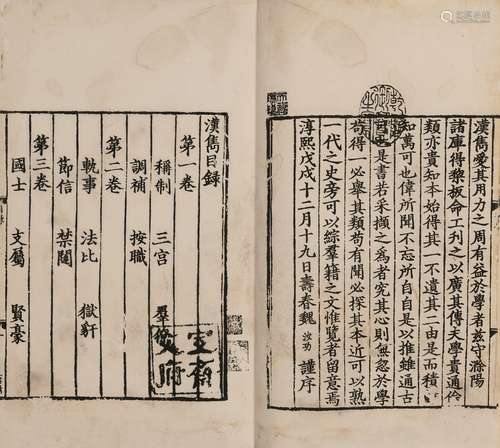 漢雋愛其用力之周有益於學者茲守滁陽
諸庫得棃板命工刊之以廣其傳夫學貴通倫
類亦貴知本始得其一不遺其二由是而積
知萬可也偉所聞不忘所自自是以推雖通古
也是書若采擷之為者究其心則無忽於學
苟得一必舉其類苟有聞必探其本近可以熟
一代之史旁可以綜羣籍之文惟覽者留意焉
淳熙戊戌十二月十九日壽春魏汝功謹序
漢雋目錄
第一卷
稱制 三宮 羣
調補 按職
第二卷
軌事 法比 獄犴
節信 禁闥
第三卷
國士 支屬 賢豪